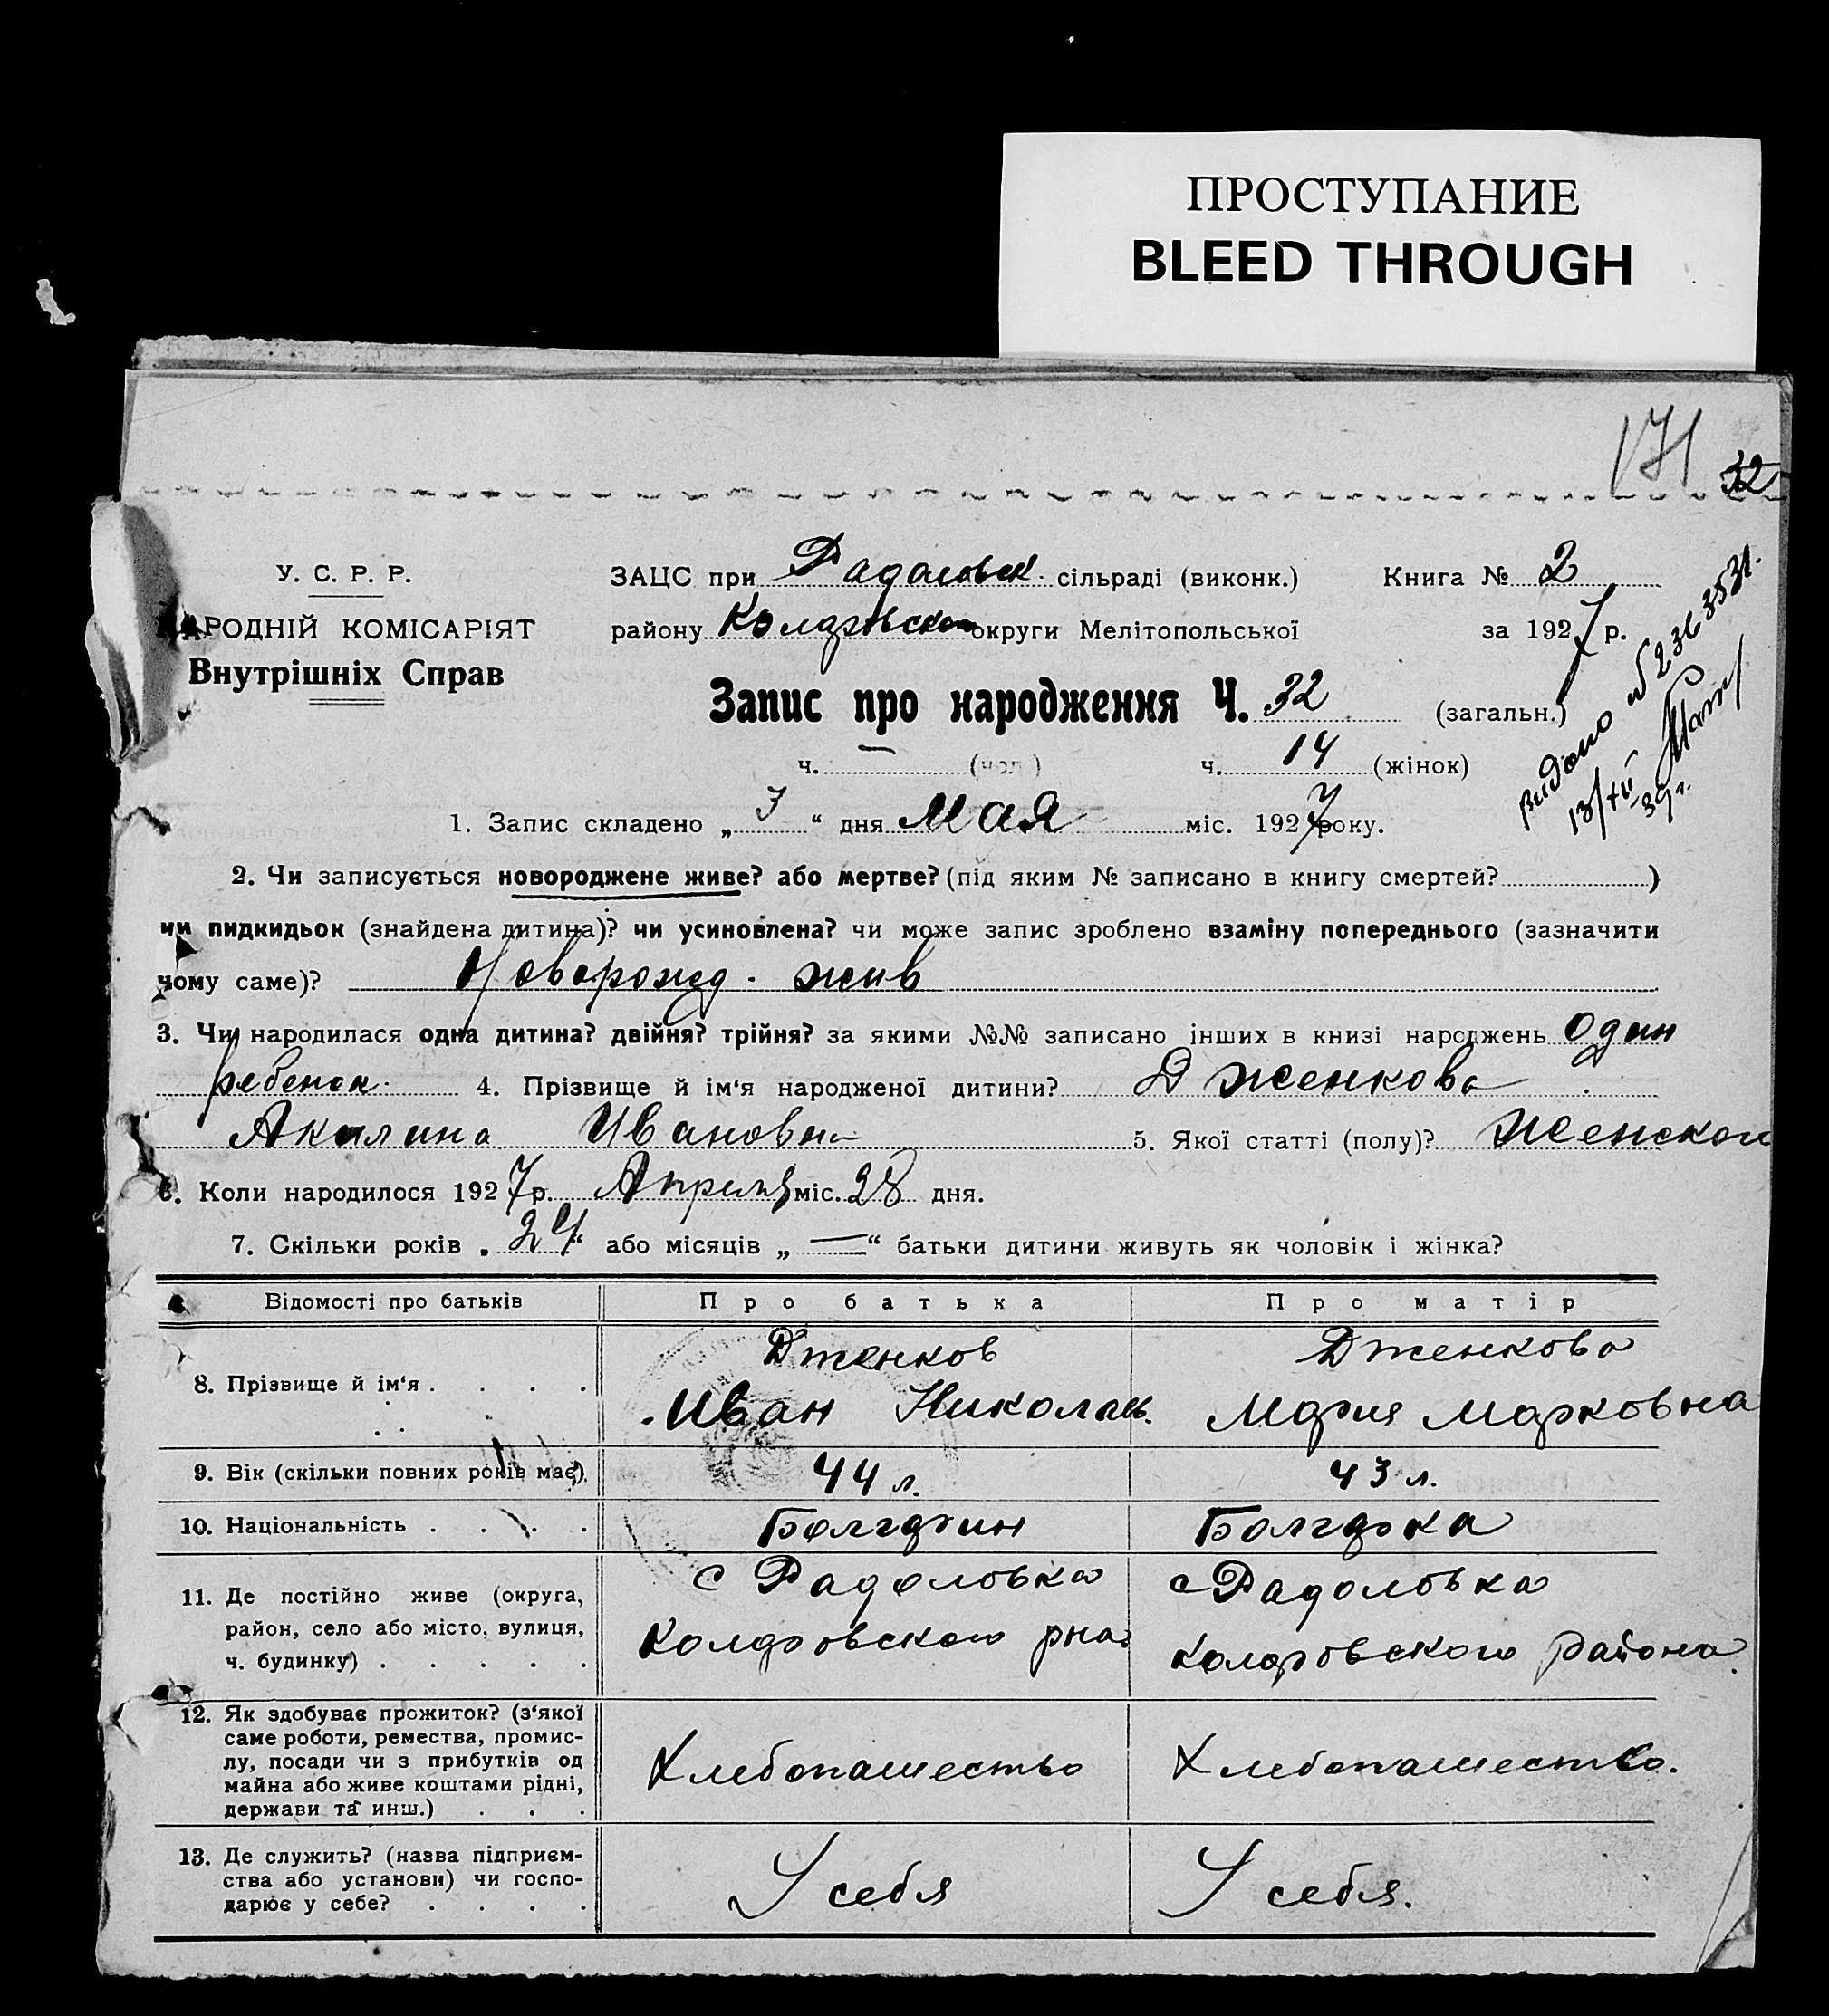 ПРОСТУПАНИЕ
BLEED THROUGH
171 32
У. С. Р. Р.
НАРОДНІЙ КОМІСАРІЯТ
Внутрішніх Справ
ЗАЦС при Радоловск. сільраді (виконк.) Книга № 2
району Коларовского округи Мелітопольської за 1927 р.
Запис про народження Ч. 32 (загальн.)
ч. — (чол.) ч. 14 (жінок)
видано
13/XII
39 г.
1. Запис складено „ 3 “ дня Мая міс. 1927 року.
2. Чи записується новороджене живе? або мертве? (під яким № записано в книгу смертей? )
чи пидкидьок (знайдена дитина)? чи усиновлена? чи може запис зроблено взаміну попереднього (зазначити
чому саме)? Новорожд. жив
3. Чи народилася одна дитина? двійня? трійня? за якими №№ записано інших в книзі народжень один
ребенок. 4. Прізвище й ім‘я народженої дитини? Дженкова
Акилина Ивановна 5. Якої статті (полу)? Женскаго
6. Коли народилося 1927 р. Апреля міс. 28 дня.
7. Скільки років „ 24 “ або місяців „ — “ батьки дитини живуть як чоловік і жінка?
Відомості про батьків Про батька Про матір
8. Прізвище й ім‘я . . . . Дженков Иван Николаев. Дженкова Мария Марковна
9. Вік (скільки повних років має). 44 л. 43 л.
10. Національність . . . . Болгарин Болгарка
11. Де постійно живе (округа,
район, село або місто, вулиця,
ч. будинку) . . . . .
с Радоловка
Коларовского рна.
с Радоловка
Коларовского района.
12. Як здобуває прожиток? (з‘якої
саме роботи, ремества, промис-
лу, посади чи з прибутків од
майна або живе коштами рідні,
держави та инш.) . . .
Хлебопашество Хлебопашество.
13. Де служить? (назва підприєм-
ства або установи) чи госпо-
дарює у себе? . . . .
У себя У себя.